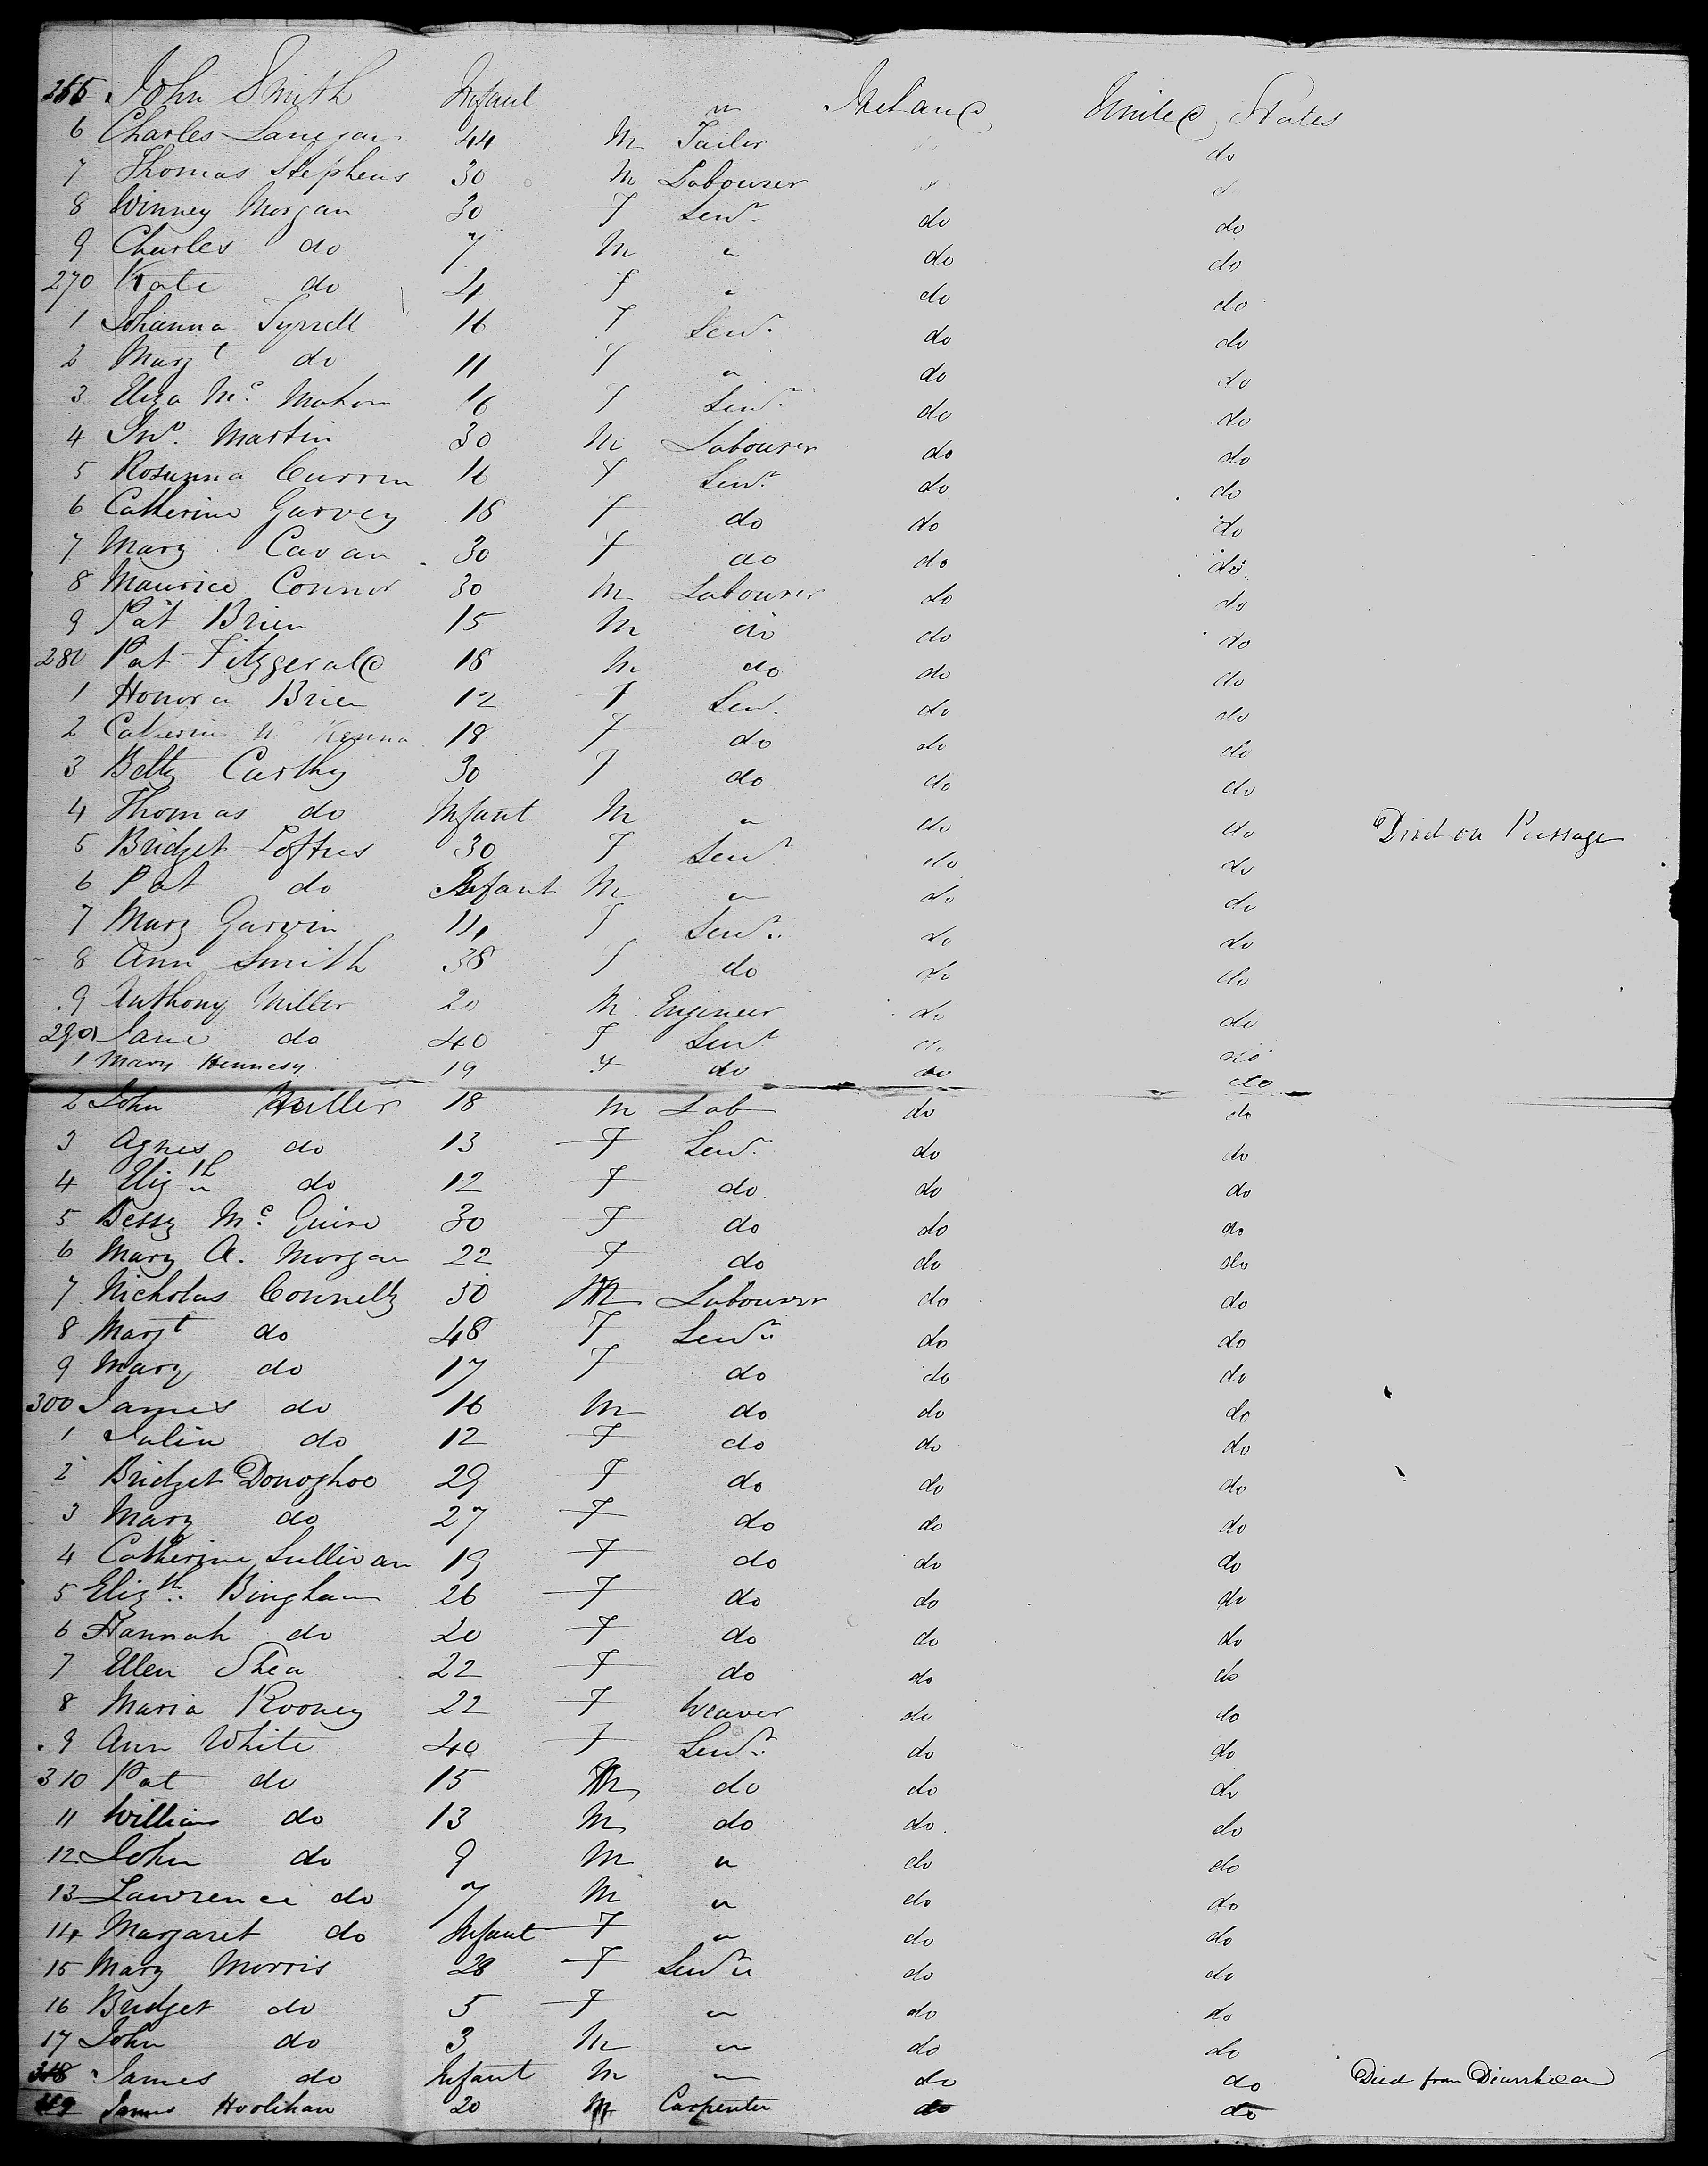 265 John Smith Infant " Ireland United States
6 Charles Lanegan 44 M Tailor do
7 Thomas Stephens 30 M Labourer
8 Winney Morgan 30 F Serv.t do do
9 Charles do 7 M " do do
270 Kate do 4 F " do do
1 Johanna Tyrrell 16 F Serv.t do do
2 Marg.t do 11 F " do do
3 Eliza Mc. Mahon 16 F Serv.t do do
4 Jno. Martin 30 M Labourer do do
5 Rosanna Curren 16 F Serv.t do do
6 Catherine Garvey 18 F do do do
7 Mary Cavan 30 F do do do
8 Maurice Connor 30 M Labourer do do
9 Pat Brien 15 M do do do
280 Pat Fitzgerald 18 M do do do
1 Honora Brien 12 F Serv. do do
2 Catherin Mc Kenna 18 F do do do
3 Betty Carthy 30 F do do do
4 Thomas do Infant M " do do Died on Passage
5 Bridget Loftus 30 F Serv.t do do
6 Pat do Infant M " do do
7 Mary Garvin 11 F Serv.t do do
8 Ann Smith 38 F do do do
9 Anthony Miller 20 M Engineer do do
290 Jane do 40 F Serv.t do do
1 Mary Hennesy 19 F do do do
2 John Miller 18 M Lab do do
3 Agnes do 13 F Serv.t do do
4 Eliz.th do 12 F do do do
5 Bessy Mc. Guire 30 F do do do
6 Mary A. Morgan 22 F do do do
7 Nicholas Connelly 50 M Labourer do do
8 Marg.t do 48 F Serv.t do do
9 Mary do 17 F do do do
300 James do 16 M do do do
1 Julia do 12 F do do do
2 Bridget Donoghoe 29 F do do do
3 Mary do 27 F do do do
4 Catherine Sullivan 19 F do do do
5 Eliz.th Bingham 26 F do do do
6 Hannah do 20 F do do do
7 Ellen Shea 22 F do do do
8 Maria Rooney 22 F Weaver do do
9 Ann White 40 F Serv.t do do
310 Pat do 15 M do do do
11 William do 13 M do do do
12 John do 9 M " do do
13 Lawrence do 7 M " do do
14 Margaret do Infant F " do do
15 Mary Morris 28 F Serv.t do do
16 Bridget do 5 F " do do
17 John do 3 M " do do
318 James do Infant M " do do Died from Diarrhoea
19 James Hoolihan 20 M Carpenter do do